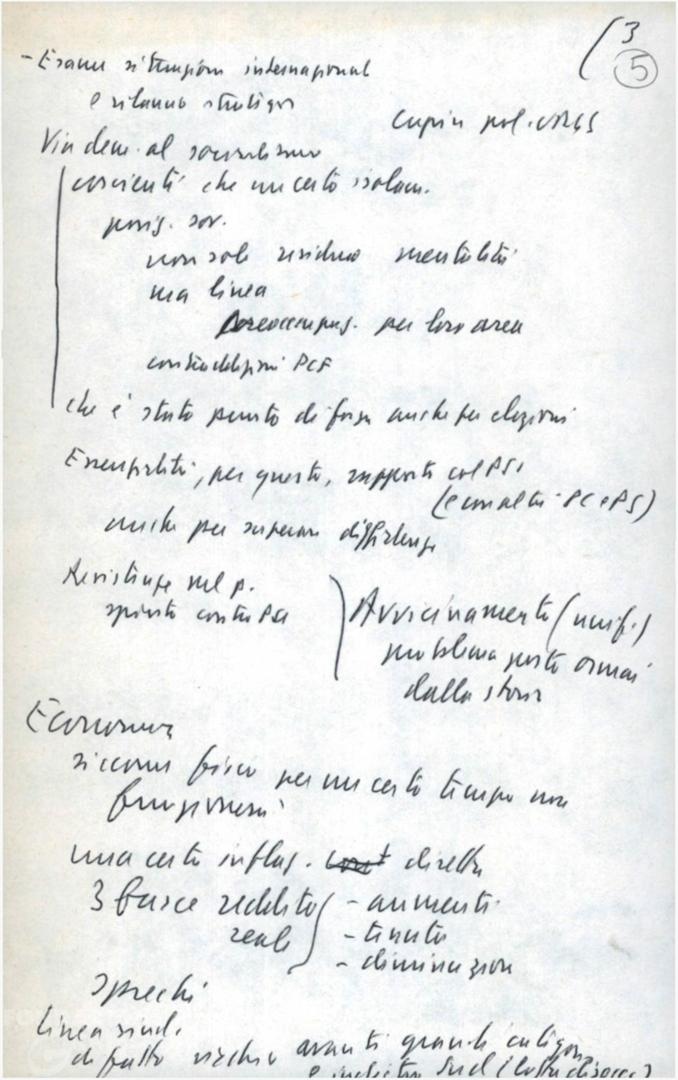 (3
5
- Esame situazione internazional
e rilancio strategi
capir pol. URSS
Via dem. al socialismo
coscienti che un certo isolam.
posiz. sov.
non solo residuo mentalità
ma linea
preoccupaz. per loro area
contraddizioni PCF
che è stato punto di forza anche per elezioni
Essenzialità, per questo, rapporti col PSI
(e con altri PC e PS)
anche per superare diffidenze
Resistenze nel p.
spinta contro PSI
Avvicinamento (unif.)
problema posto ormai
dalla storia
Economia
siccome fisco per un certo tempo non
funzionerà
una certa inflaz. diretta
3 fasce reddito
reale
- aumenti
- tenuta
- diminuzion
sprechi
Linea sind.
di fatto rischio avanti grandi categor.
e industr. Sud (lotta disocc.)